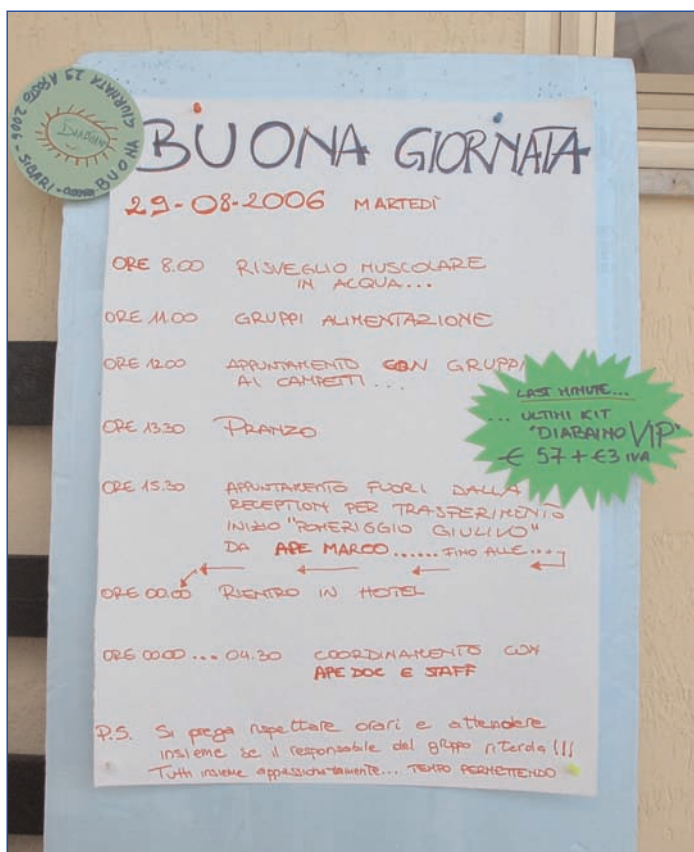 BUONA GIORNATA 29 AGOSTO 2006 - SIBARI -
DIABAINO
BUONA GIORNATA
29-08-2006 MARTEDÌ
ORE 8.00 RISVEGLIO MUSCOLARE
IN ACQUA...
ORE 11.00 GRUPPI ALIMENTAZIONE
ORE 12.00 APPUNTAMENTO CON GRUPPI
AI CAMPETTI...
LAST MINUTE...
... ULTIMI KIT
"DIABAINO VIP"
€ 57 + €3 IVA
ORE 13.30 PRANZO
ORE 15.30 APPUNTAMENTO FUORI DALLA
RECEPTION PER TRASFERIMENTO
INIZIO "POMERIGGIO GIULIVO"
DA APE MARCO ...... FINO ALLE....
ORE 00.00 RIENTRO IN HOTEL
ORE 00.00 ... 04.30 COORDINAMENTO CON
APE DOC E STAFF
P.S. Si prega rispettare orari e attendere
insieme se il responsabile del gruppo ritarda!!!
Tutti insieme appassionatamente... TEMPO PERMETTENDO